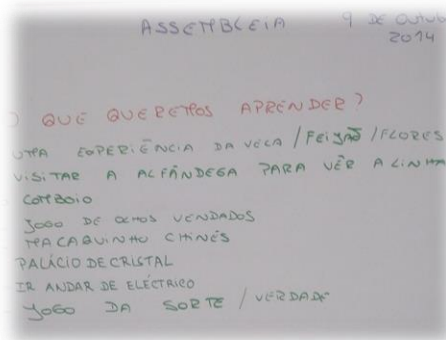 ASSEMBLEIA 9 DE Outub
2014
O QUE QUEREMOS APRENDER?
UMA EXPERIÊNCIA DA VELA / FEIJÃO / FLORES
VISITAR A ALFÂNDEGA PARA VÊR A LINHA
COMBOIO
JOGO DE OLHOS VENDADOS
MACAQUINHO CHINÊS
PALÁCIO DE CRISTAL
IR ANDAR DE ELÉCTRICO
JOGO DA SORTE / VERDADE